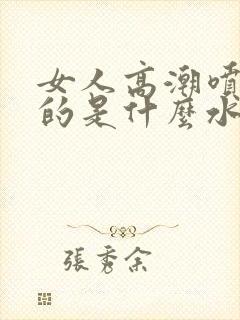 女人高潮噴
的是什麼水
張秀余